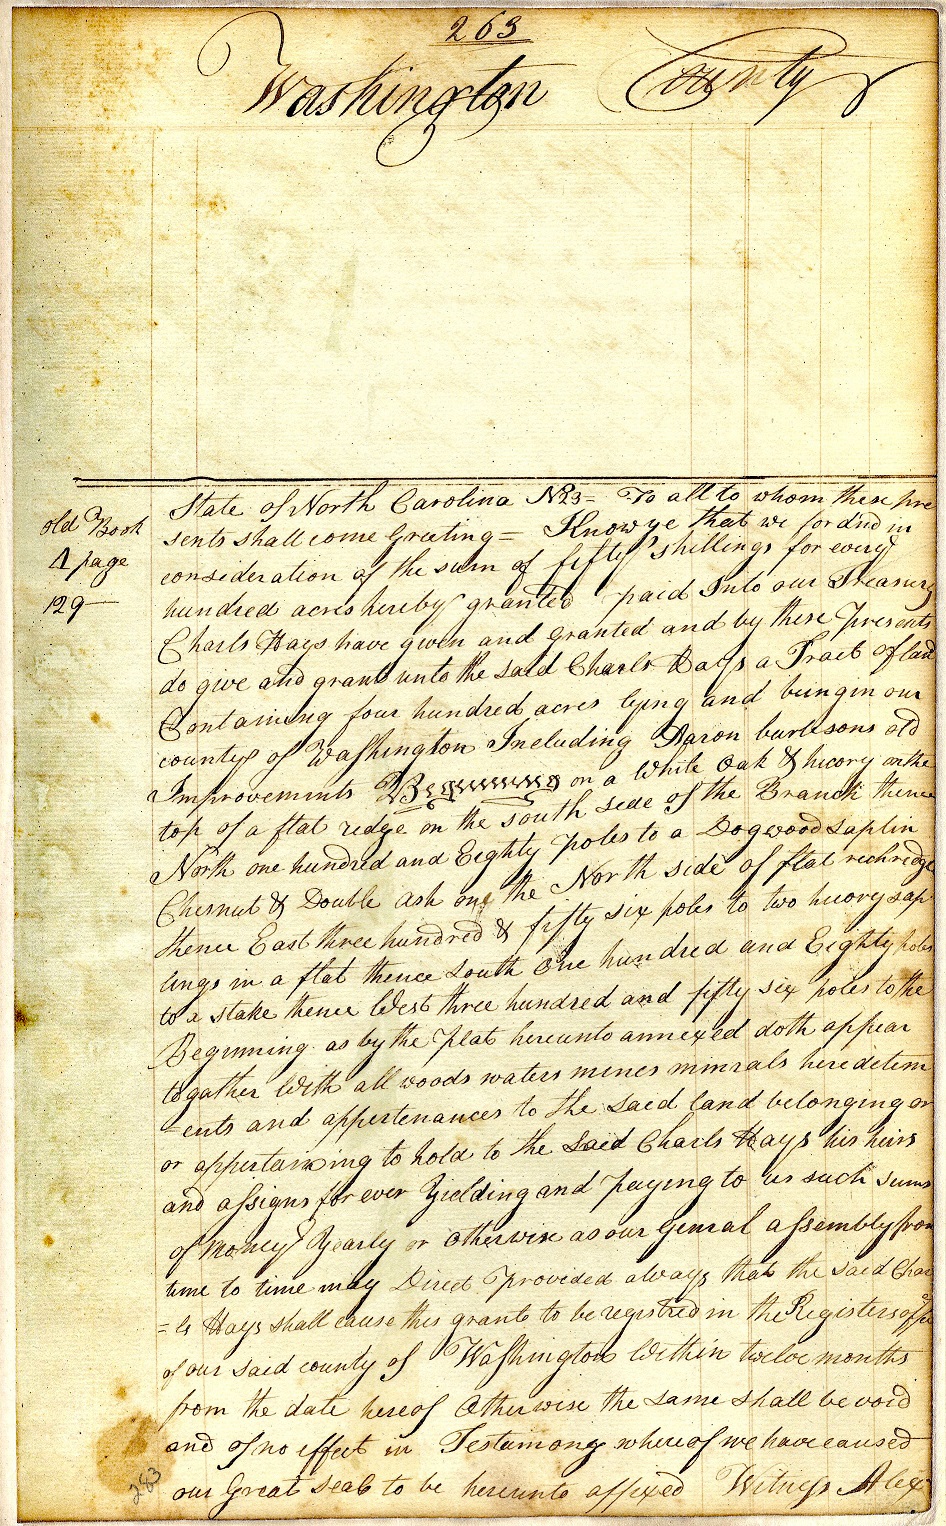 263
Washington County
old Book
A page
129—
State of North Carolina No 23= To all to whom these pre
sents shall come Greeting= Know ye that we for & in
consideration of the sum of fifty shillings for every
hundred acres hereby granted paid Into our Treasury
Charls Hays have given and granted and by these Presents
do give and grant unto the said Charls Hays a Tract of land
Containing four hundred acres lying and being in our
county of Washington Including Aaron burlesons old
Improvements Beginning on a White Oak & hicory on the
top of a flat redge on the south side of the Branch thence
North one hundred and Eighty poles to a Dogwood saplin
Chesnut & Double ash on the North side of flat rich redge
thence East three hundred & fifty six poles to two hicory sap
lings in a flat thence South One hundred and Eighty poles
to a stake thence West three hundred and fifty six poles to the
Beginning as by the Plat hereunto annexed doth appear
togather With all woods waters mines minrals heredetem
=ents and appertenances to the said land belonging or
or appertaining to hold to the said Charls Hays his heirs
and assigns for ever Yielding and paying to us such sums
of money Yearly or otherwise as our Genral assembly from
time to time may Direct Provided always that the said Char
=ls Hays shall cause this grant to be registred in the Registers offi
of our said county of Washington Within twelve months
from the date hereof Otherwise the same shall be void
and of no effect in Testamony whereof we have caused
our Great seal to be hereunto affixed Witness Alex
283